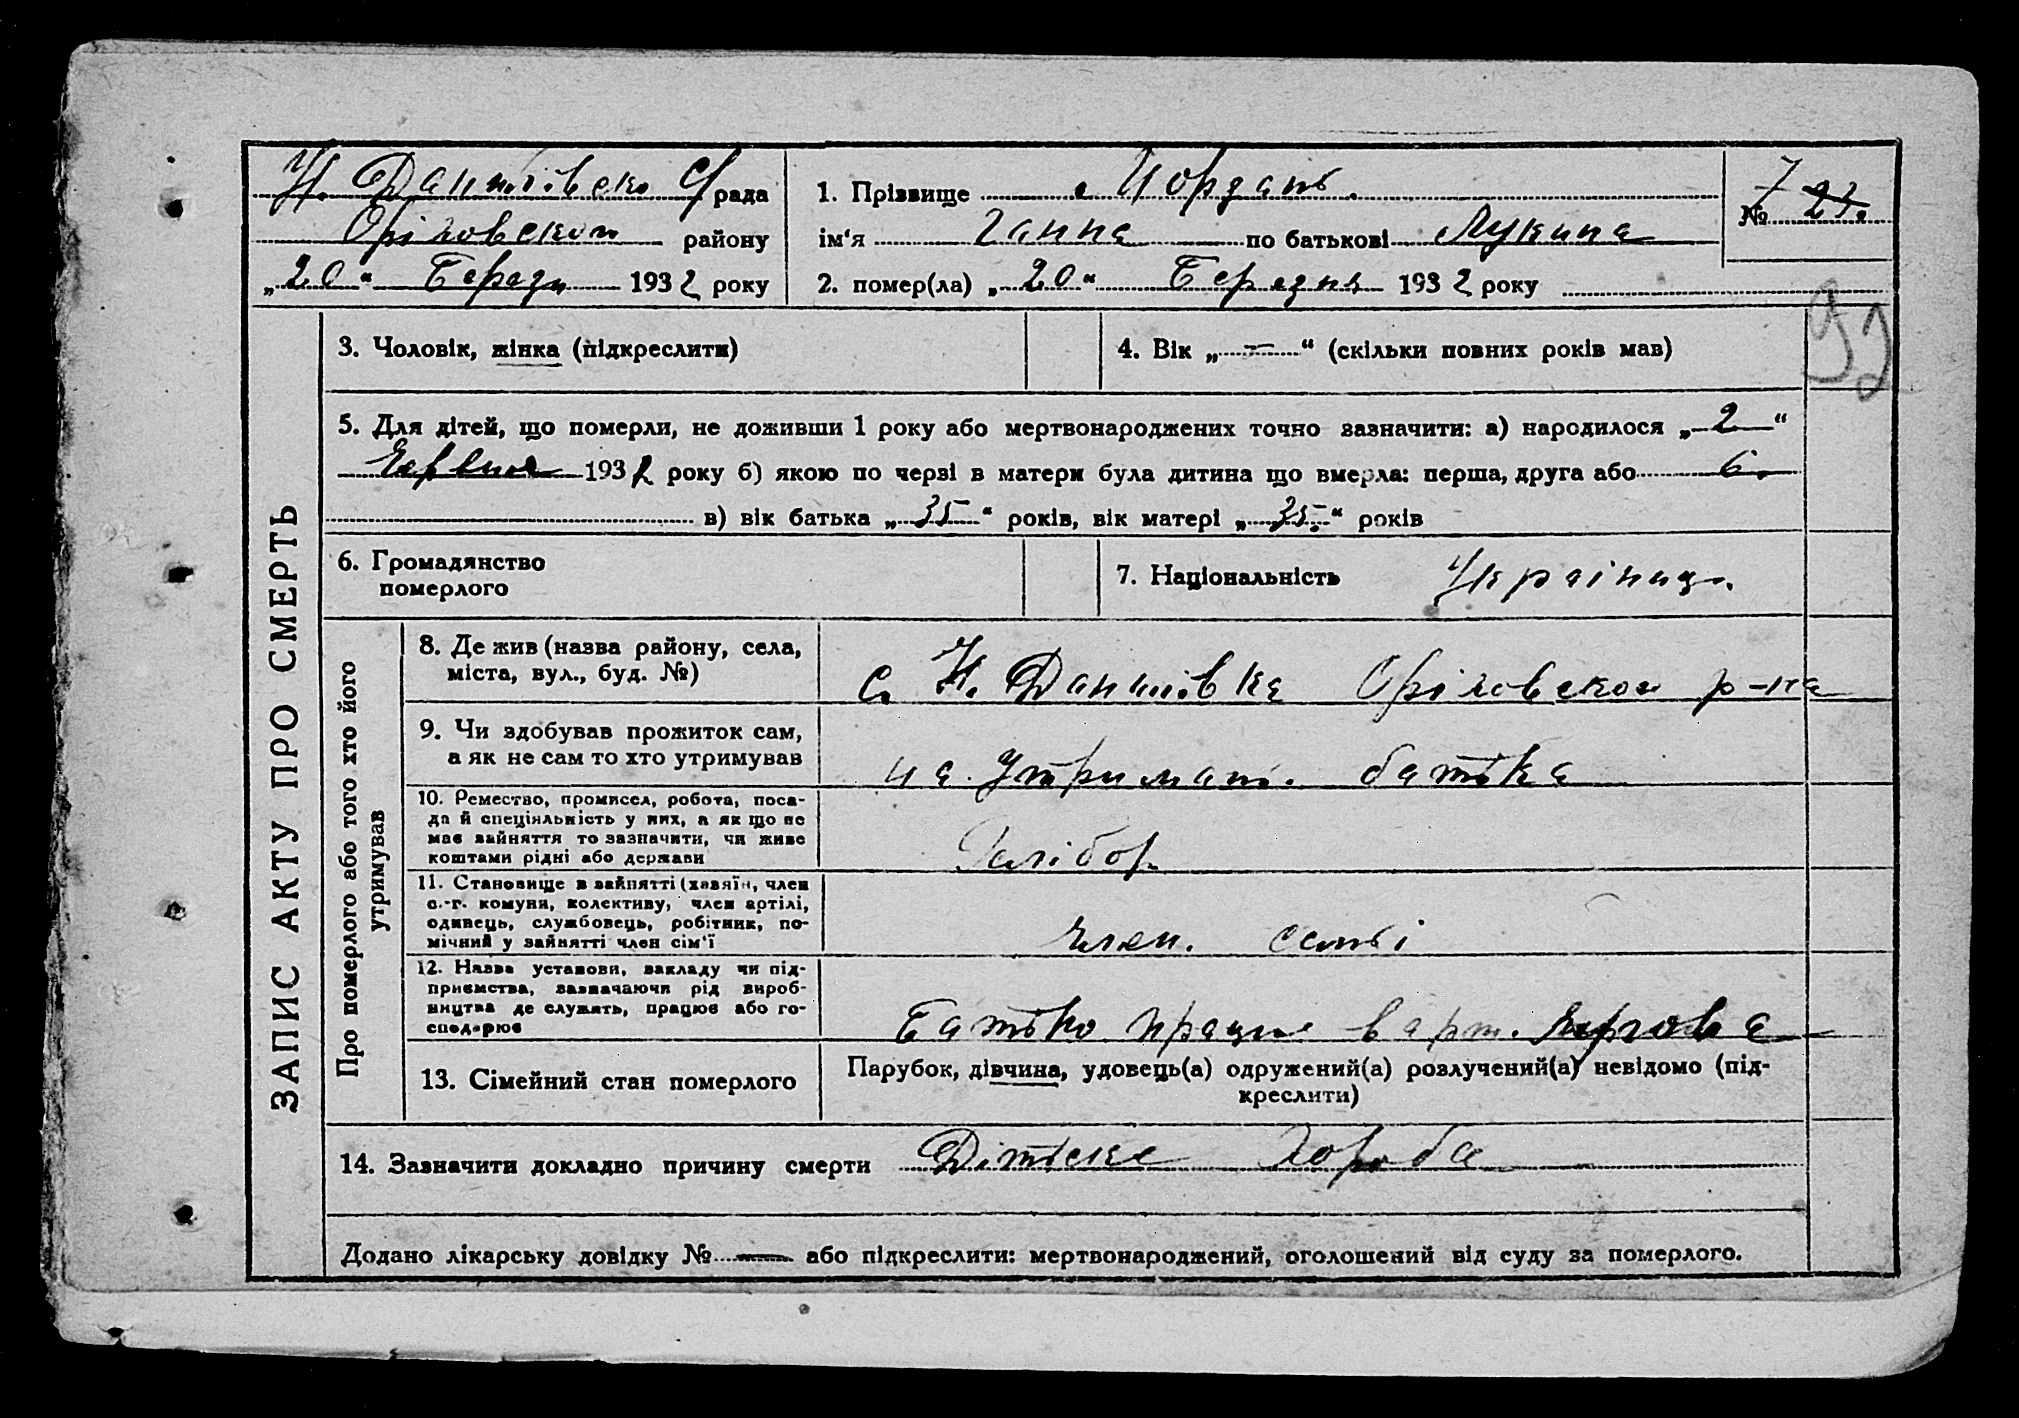 Н. Данилівсько С/рада
Оріловской району
„20“ Березн 1932 року
1. Прізвище Йордань
ім'я Ганна по батькові Лукина
2. помер(ла) „20“ Березня 1932 року
7 № 23.
93
ЗАПИС АКТУ ПРО СМЕРТЬ
3. Чоловік, жінка (підкреслити)
4. Вік „—“ (скільки повних років мав)
5. Для дітей, що померли, не доживши 1 року або мертвонароджених точно зазначити: а) народилося „2“
Червня 1932 року б) якою по черві в матери була дитина що вмерла: перша, друга або 6.
в) вік батька „35“ років, вік матері „35“ років
6. Громадянство
померлого
7. Національність Українц.
Про померлого або того хто його
утримував
8. Де жив (назва району, села,
міста, вул., буд. №)
с. Н. Данилівка Оріловской р-на
9. Чи здобував прожиток сам,
а як не сам то хто утримував
на утриман. батька
10. Ремество, промисел, робота, поса-
да й спеціяльність у них, а як що не
має зайняття то зазначити, чи живе
коштами рідні або держави
11. Становище в зайнятті (хазяїн, член
с.-г. комуни, колективу, член артілі,
одинець, службовець, робітник, по-
мічний у зайнятті член сім'ї
член. семьі
12. Назва установи, закладу чи під-
приємства, зазначаючи рід вироб-
ництва де служить, працює або го-
сподарює
Батько працює в арт.
13. Сімейний стан померлого
Парубок, дівчина, удовець(а) одружений(а) розлучений(а) невідомо (під-
креслити)
14. Зазначити докладно причину смерти Дітське хороба
Додано лікарську довідку № — або підкреслити: мертвонароджений, оголошений від суду за померлого.